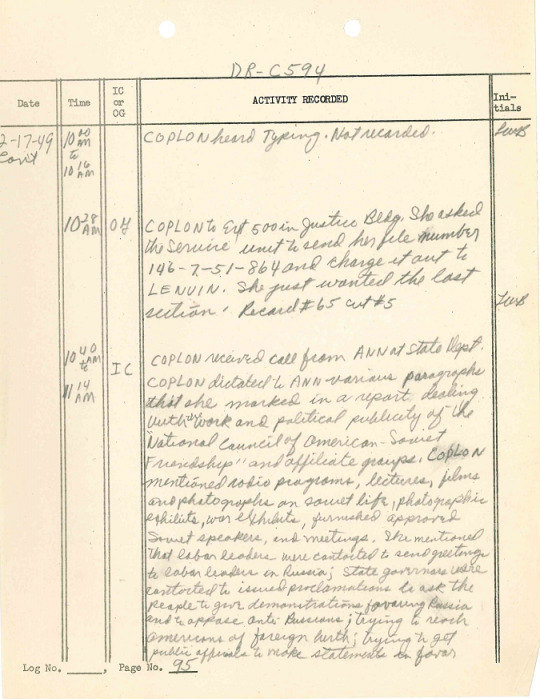 DR-C594
Date Time IC or OG ACTIVITY RECORDED Ini-tials
2-17-49 Con't
10 00 AM to 10 16 AM
COPLON heard Typing. Not recorded.
10 28 AM OG
COPLON to Ext 500 in Justice Bldg. She asked
the Service unit to send her file number
146-7-51-864 and charge it out to
LENVIN. She just wanted the last
section. Record #65 cut #5
10 40 AM to 11 14 AM IC
COPLON received call from ANN at State Dept.
COPLON dictated to ANN various paragraphs
that she marked in a report dealing
with the work and political publicity of the
"National Council of American-Soviet
Friendship" and affiliate groups. COPLON
mentioned radio programs, lectures, films
and photographs on soviet life, photographic
exhibits, war exhibits, furnished approved
Soviet speakers, and meetings. She mentioned
that labor leaders were contacted to send greetings
to labor leaders in Russia; State governors were
contacted to issued proclamations to ask the
people to give demonstrations favoring Russia
and to oppose anti-Russians; trying to reach
americans of foreign birth; trying to get
public officials to make statements in favor
Log No. Page No. 95